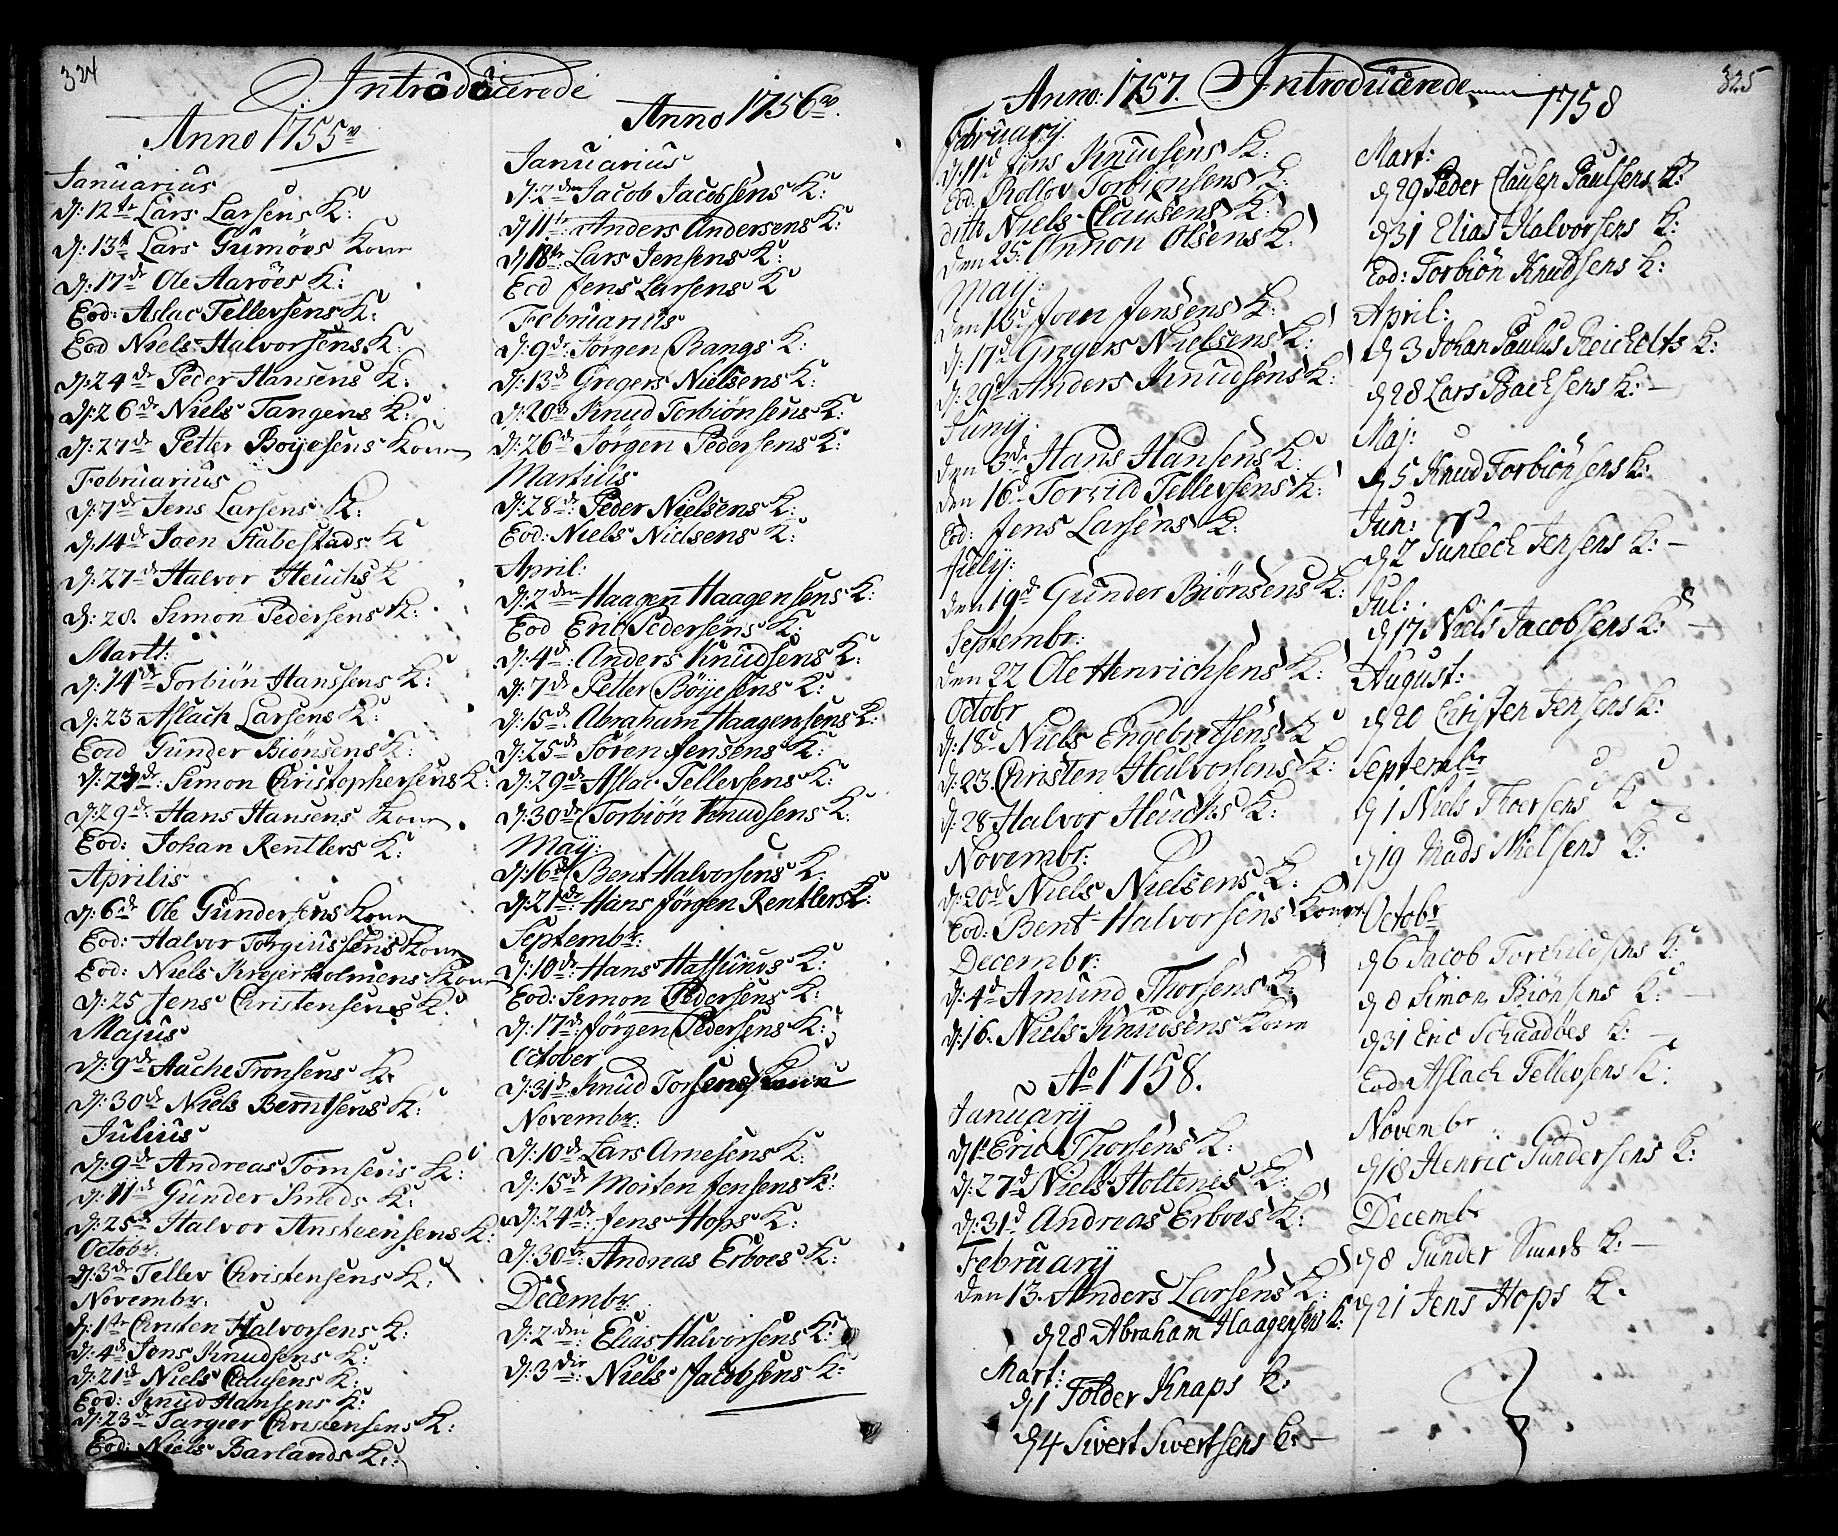 324
Introducerede
Anno 1755
Januarius
D: 12te Lars Larsens K:
D: 13t Lars Gumöes Kone
D: 17de Ole Aaröes K:
Eod: Aslac Tellevsens K:
Eod Niels Halvorsens K:
D: 24de Peder Hansens K:
D: 26de Niels Tangens K:
D: 27de Petter Boyesens Kone
Februarius
D: 7de Jens Larsens K:
D: 14de Joen Stabestads K
D: 27de Halvor Heuchs K
D: 28. Simon Pedersens K:
Martt:
D: 14de Torbiön Hanssens K:
D: 23 Aslach Larsens K:
Eod Gunder Biönsens K:
D: 24de Simon Christophersens K:
D: 29de Hans Hansens Kone
Eod: Johan Rentlers K:
Aprilis
D: 6de Ole Gundersens Kone
Eod: Halvor Torgiussens Kone
Eod: Niels Krejerholmens Kone
D: 25 Jens Christensens K:
Majus
D: 9de Aache Tronsens K:
D: 30de Niels Berntsens K:
Julius
D: 9de Andreas Tomsens K:
D: 11d Gunder Smeds K:
D: 25d Halvor Ansteensens K:
Octobr:
D: 3de Tellev Christensens K:
Novembr:
D: 1te Christen Halvorsens K:
D: 4de Jens Knudsens K:
D: 21de Niels Clausens K:
Eod: Knud Hansens K:
D: 23de Targier Christensens K:
Eod: Niels Barlands K:
Anno 1756
Januarius
D: 2den Jacob Jacobsens K:
D: 11te Anders Andersens K:
D: 18te Lars Jensens K:
Eod Jens Larsens K
Februarius
D: 9de Jörgen Bangs K:
D: 13d Gregers Nielsens K:
D: 20de Knud Torbiönsens K:
D: 26de Jörgen Pedersens K:
Martius
D: 28de: Peder Nielsens K:
Eod: Niels Nielsens K:
April:
D: 2den Haagen Haagensens K:
Eod Eric Pedersens K:
D: 4d: Anders Knudsens K:
D: 7de Petter Böyesens K:
D: 15d: Abraham Haagensens K:
D: 25de Sören Jensens K:
D: 29de Aslac Tellevsens K:
D: 30de Torbiön Knudsens K:
May:
D: 16de Bent Halvorsens K:
D: 21de: Hans Jörgen Rentlers K:
Septembr:
D: 10de: Hans Hassunds K:
Eod: Simon Pedersens K:
D: 17de: Jörgen Pedersens K:
October
D: 31de Knud Torsens Kone
Novembr:
D: 10de Lars Arnesens K:
D: 15de Morten Jensens K:
D: 24de: Jens Hops K:
D: 30te: Andreas Erboes K:
Decembr:
D: 2den Elias Halvorsens K:
D: 3die Niels Jacobsens K:
Anno: 1757. Introducerede
325
Februarij:
D: 11d Jens Knudsens K:
Eod. Rollov Torbiönsens K:
dito Niels Clausens K:
Den 25. Onnon Olsens K:
Maij:
Den 16d Joen Jensens K:
D: 17d Gregers Nielsens K:
D: 29d Anders Knudsens K:
Junij:
Den 3de Hans Hansens K:
Den 16d Torkild Tellevsens K:
Eod: Jens Larsens K:
Julij:
Den 19d Gunder Biönsens K:
Septembr:
Den 22 Ole Henrichsens K:
Octobr
D: 18d Niels Engebretsens K
D: 23. Christen Halvorsens K:
D: 28 Halvor Heuchs K:
Novembr:
D: 20d Niels Nielsens K:
Eod: Bent Halvorsens Kone
Decembr:
D: 4d Amund Thorsens K:
D: 16. Niels Knudsens Kone
Ao 1758.
Januarij
D 1t Eric Thorsens K:
D: 27d Niels Holtenes K:
D: 31d Andreas Erboes K:
Februarij
Den 13. Anders Larsens K:
D 28 Abraham Haagensens K:
Mart:
D 1 Tolder Knaps K:
D 4 Sivert Sivertsens K: —
1758
Mart:
D 29 Peder Clausen Paulsens K:
D 31 Elias Halvorsens K:
Eod: Torbiön Knudsens K:
April:
D 3 Johan Paulus Reicheltts K:
D 28 Lars Bachsens K: —
Maj:
D 5 Knud Torbiönsens K:
Jun:
D 2 Gunlech Jensens K: —
Jul:
D 17 Niels Jacobsens K: —
August:
D 20 Christen Jensens K:
Septembr
D 1 Niels Thoersens K
D 19 Mads Nielsens K:
Octobr
D 6 Jacob Torchildsens K:
D 8 Simon Biönsens K: —
D 31 Eric Schaadöes K: —
Eod Aslach Tellevsens K:
Novembr
D 18 Henric Gundersens K:
Decembr
D 8 Gunder Smeds K: —
D 21 Jens Hops K.